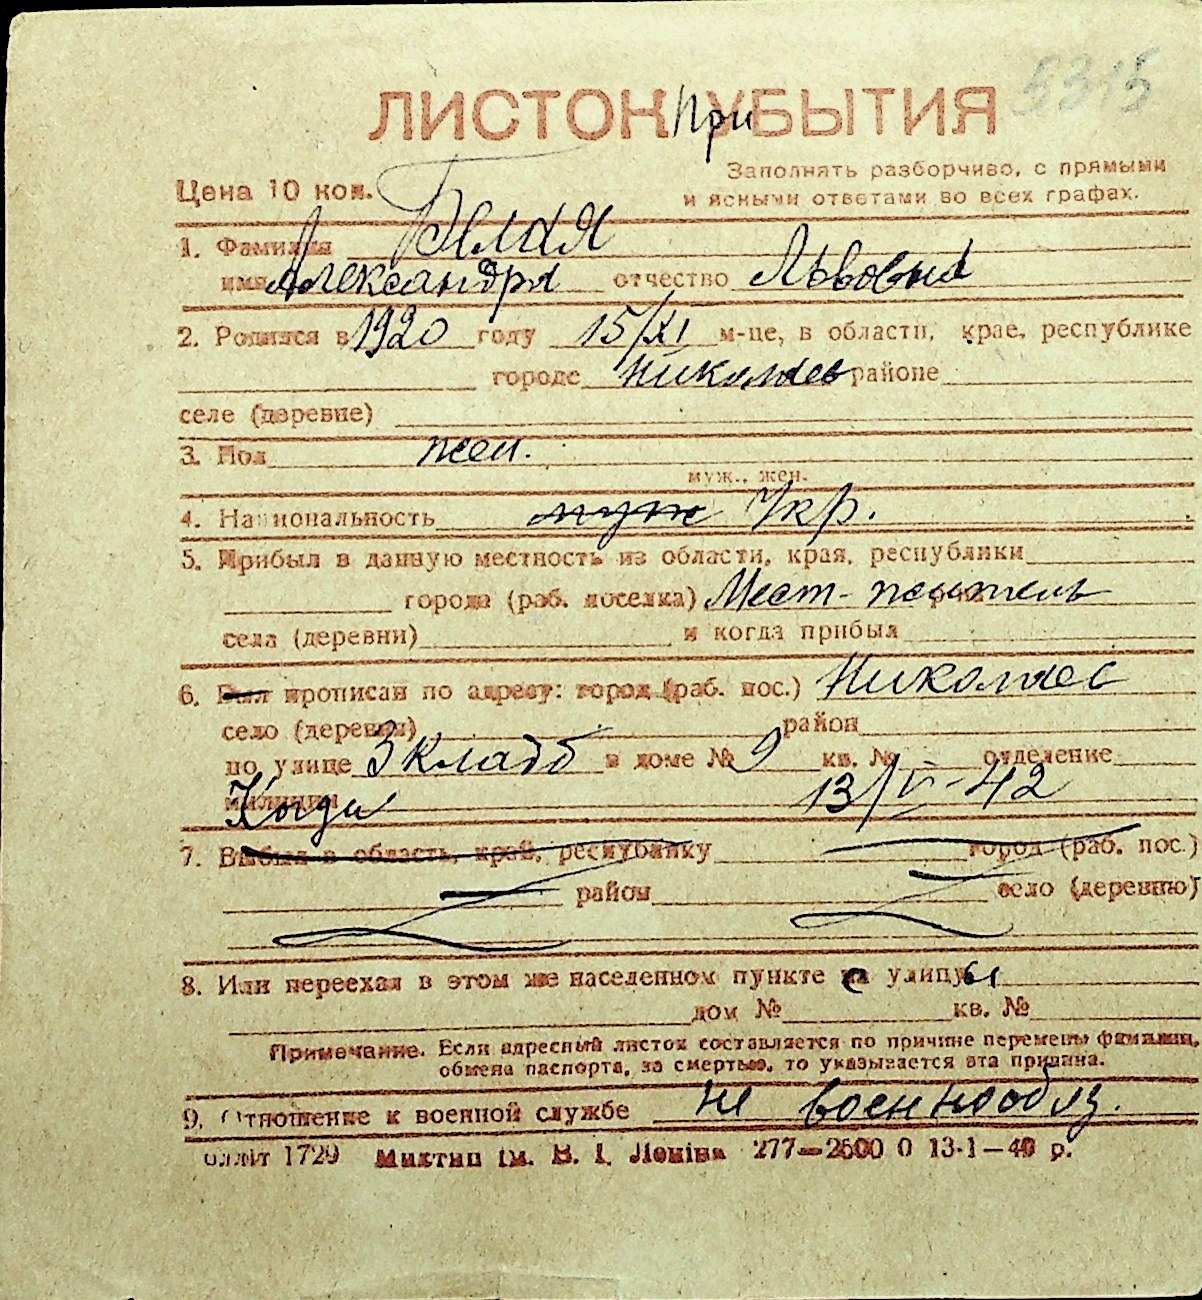 5315
ЛИСТОК При УБЫТИЯ
Заполнять разборчиво, с прямыми
Цена 10 коп.
и ясными ответами во всех графах.
1. Фамилия Белая
имя Александра отчество Львовна
2. Родился в 1920 году 15/XI м-це, в области, крае, республике
городе Николаев районе
селе (деревне)
3. Пол жен.
муж., жен.
4. Национальность муж Укр.
5. Прибыл в данную местность из области, края, республики
города (раб. поселка) Мест-житель
села (деревни) и когда прибыл
6. Был прописан по адресу: город (раб. пос.) Николаев
село (деревня) район
по улице 3 кладб в доме № 9 кв. № отделение
милиции Когда 13/V-42
7. Выбыл в область, край, республику город (раб. пос.)
район село (деревню)
8. Или переехал в этом же населенном пункте с улицы
дом № кв. №
Примечание. Если адресный листок составляется по причине перемены фамилии,
обмена паспорта, за смертью, то указывается эта причина.
9. Отношение к военной службе не военнообяз.
олліт 1729 Миктип ім. В. І. Леніна 277—2500 0 13-1—40 р.